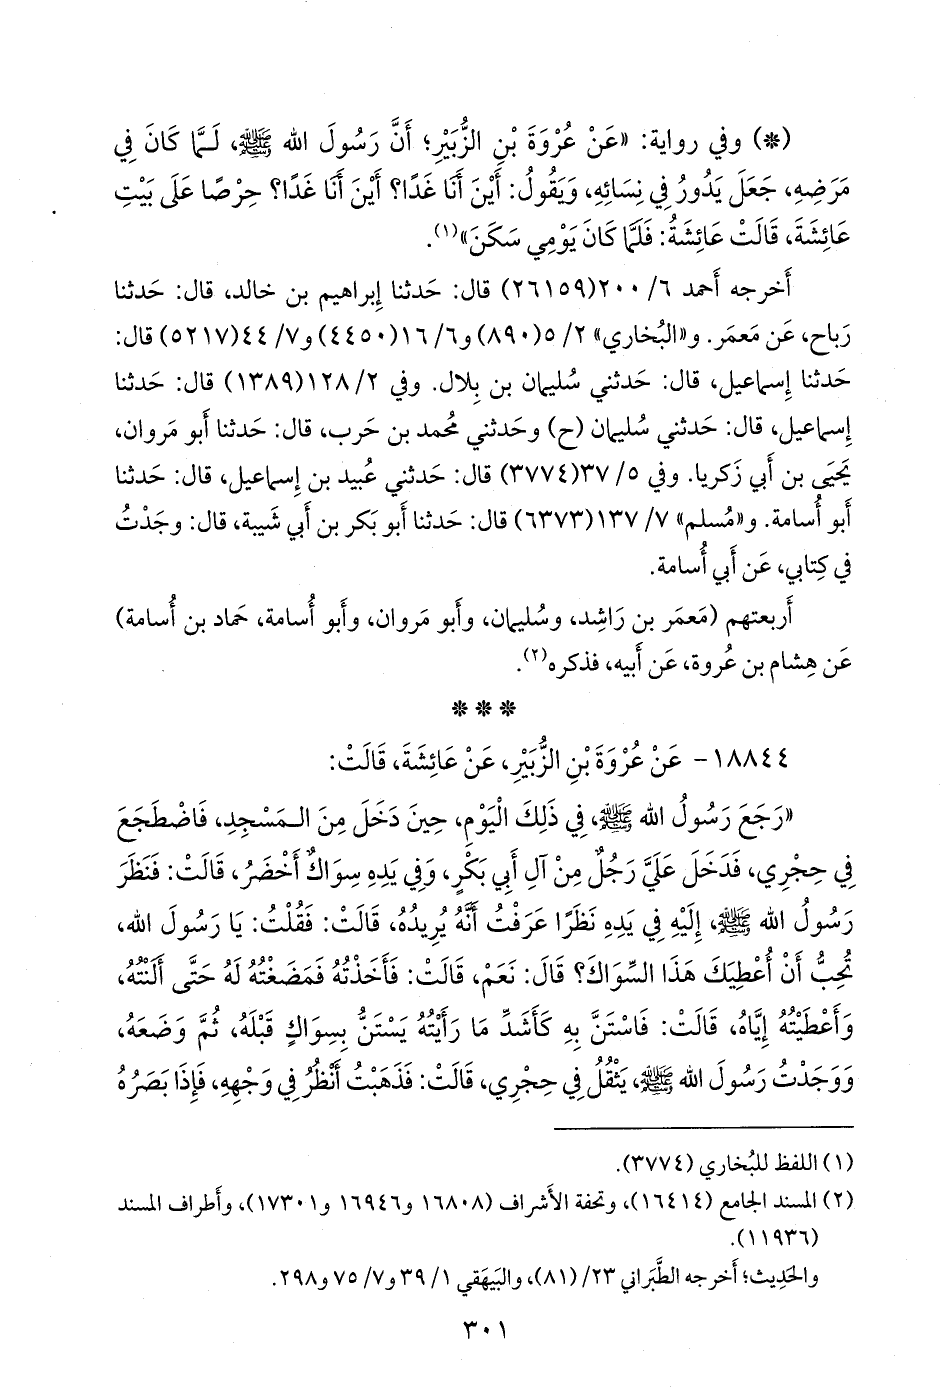 (*) وفي رواية: «عَنْ عُرْوَةَ بْنِ الزُّبَيْرِ؛ أَنَّ رَسُولَ الله ﷺ، لَـمَّا كَانَ فِي
مَرَضِهِ، جَعَلَ يَدُورُ فِي نِسَائِهِ، وَيَقُولُ: أَيْنَ أَنَا غَدًا؟ أَيْنَ أَنَا غَدًا؟ حِرْصًا عَلَى بَيْتِ
عَائِشَةَ، قَالَتْ عَائِشَةُ: فَلَمَّا كَانَ يَوْمِي سَكَنَ»(١).
أَخرجه أَحمد ٦/ ٢٠٠(٢٦١٥٩) قال: حَدثنا إِبراهيم بن خالد، قال: حَدثنا
رَباح، عَن مَعمَر. و«البُخاري» ٢/ ٥(٨٩٠) و٦/ ١٦(٤٤٥٠) و٧/ ٤٤(٥٢١٧) قال:
حَدثنا إِسماعيل، قال: حَدثني سُليمان بن بِلال. وفي ٢/ ١٢٨(١٣٨٩) قال: حَدثنا
إِسماعيل، قال: حَدثني سُليمان (ح) وحَدثني محُمد بن حَرب، قال: حَدثنا أَبو مَروان،
يَحيَى بن أَبي زَكريا. وفي ٥/ ٣٧(٣٧٧٤) قال: حَدثني عُبيد بن إِسماعيل، قال: حَدثنا
أَبو أُسامة. و«مُسلم» ٧/ ١٣٧(٦٣٧٣) قال: حَدثنا أَبو بَكر بن أَبي شَيبة، قال: وجَدْتُ
في كِتابي، عَن أَبي أُسامة.
أَربعتهم (مَعمَر بن رَاشِد، وسُليمان، وأَبو مَروان، وأَبو أُسامة، حَماد بن أُسامة)
عَن هِشام بن عُروة، عَن أَبيه، فذكره(٢).
* * *
١٨٨٤٤ - عَنْ عُرْوَةَ بْنِ الزُّبَيْرِ، عَنْ عَائِشَةَ، قَالَتْ:
«رَجَعَ رَسُولُ الله ﷺ، فِي ذَلِكَ الْيَوْمِ، حِينَ دَخَلَ مِنَ الـمَسْجِدِ، فَاضْطَجَعَ
فِي حِجْرِي، فَدَخَلَ عَلَيَّ رَجُلٌ مِنْ آلِ أَبِي بَكْرٍ، وَفِي يَدِهِ سِوَاكٌ أَخْضَرُ، قَالَتْ: فَنَظَرَ
رَسُولُ الله ﷺ، إِلَيْهِ فِي يَدِهِ نَظَرًا عَرَفْتُ أَنَّهُ يُرِيدُهُ، قَالَتْ: فَقُلْتُ: يَا رَسُولَ الله،
تُحِبُّ أَنْ أُعْطِيَكَ هَذَا السِّوَاكَ؟ قَالَ: نَعَمْ، قَالَتْ: فَأَخَذْتُهُ فَمَضَغْتُهُ لَهُ حَتَّى أَلَنْتُهُ،
وَأَعْطَيْتُهُ إِيَّاهُ، قَالَتْ: فَاسْتَنَّ بِهِ كَأَشَدِّ مَا رَأَيْتُهُ يَسْتَنُّ بِسِوَاكٍ قَبْلَهُ، ثُمَّ وَضَعَهُ،
وَوَجَدْتُ رَسُولَ الله ﷺ، يَثْقُلُ فِي حِجْرِي، قَالَتْ: فَذَهَبْتُ أَنْظُرُ فِي وَجْهِهِ، فَإِذَا بَصَرُهُ
(١) اللفظ للبُخاري (٣٧٧٤).
(٢) المسند الجامع (١٦٤١٤)، وتحفة الأَشراف (١٦٨٠٨ و١٦٩٤٦ و١٧٣٠١)، وأَطراف المسند
(١١٩٣٦).
والحَدِيث؛ أَخرجه الطَّبَراني ٢٣/ (٨١)، والبَيهَقي ١/ ٣٩ و٧/ ٧٥ و٢٩٨.
٣٠١